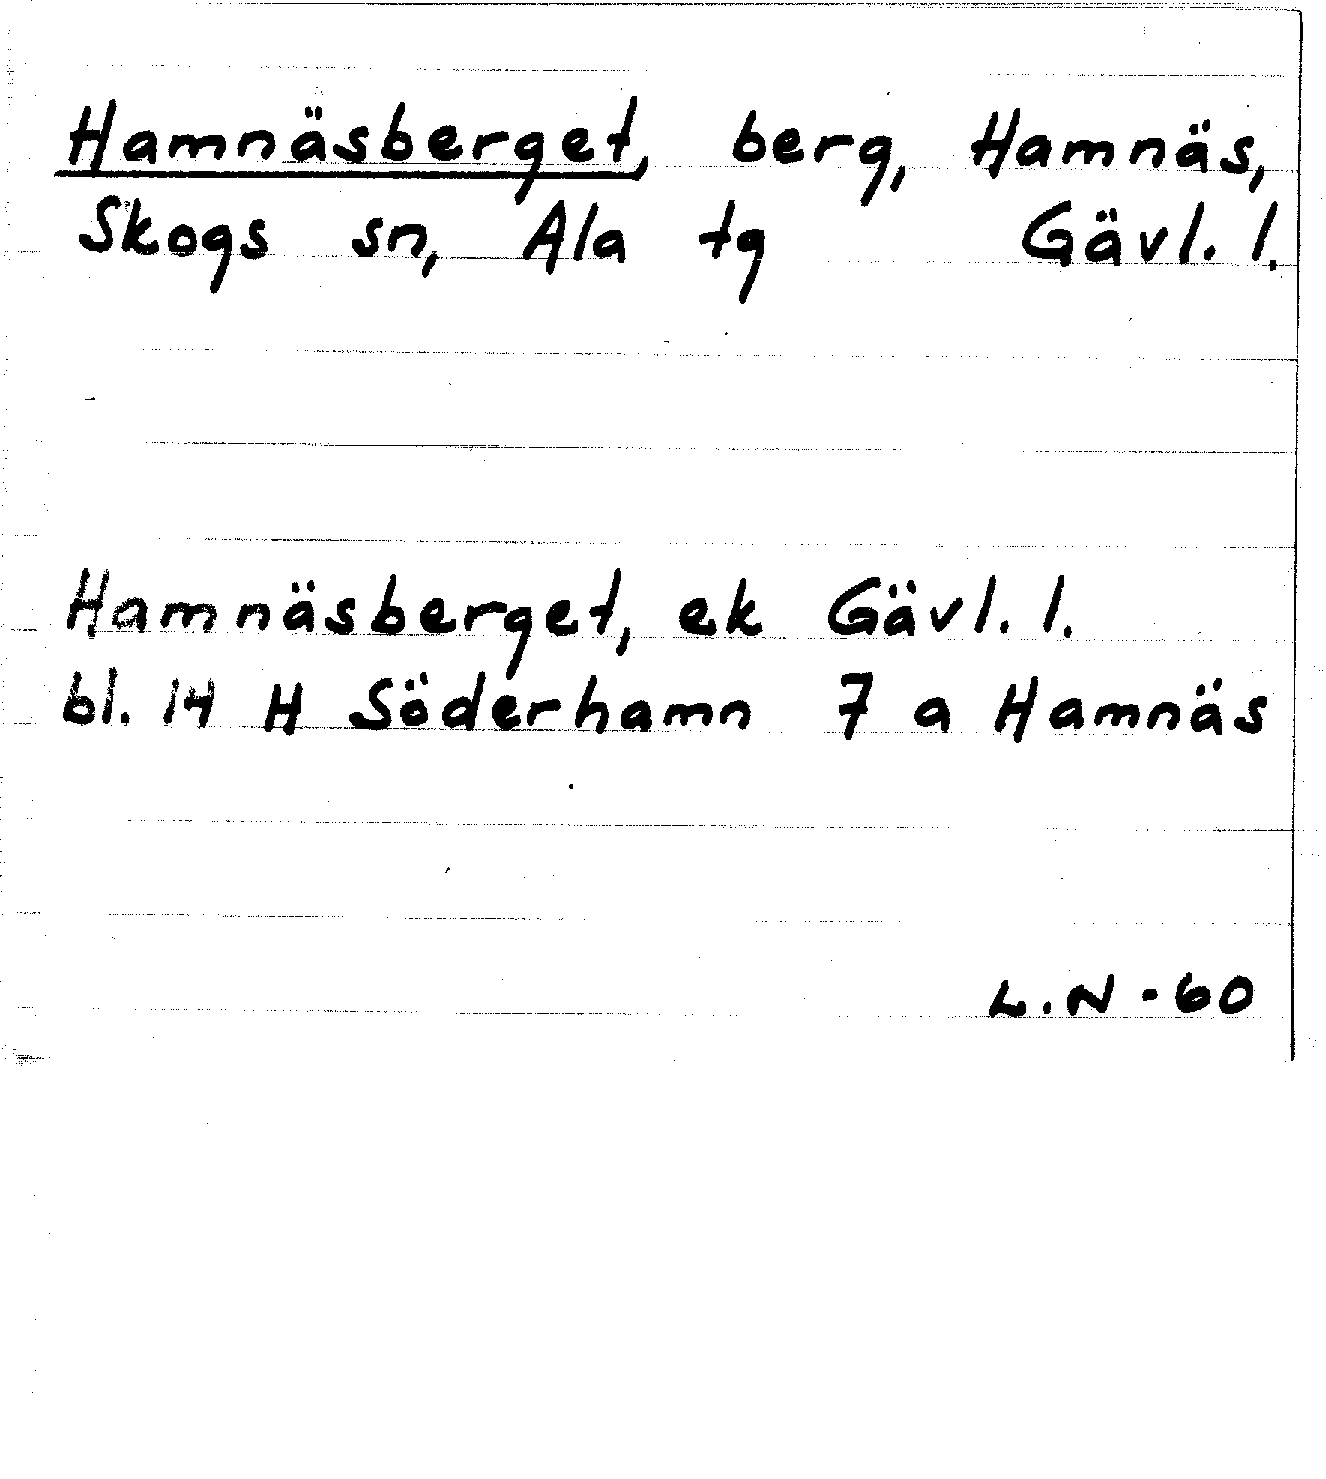 Hamnäsberget, berg, Hamnäs,
Skogs sn, Ala tg Gävl. l.
Hamnäsberget, ek Gävl. l.
bl. 14 H Söderhamn 7 a Hamnäs
L.N -60